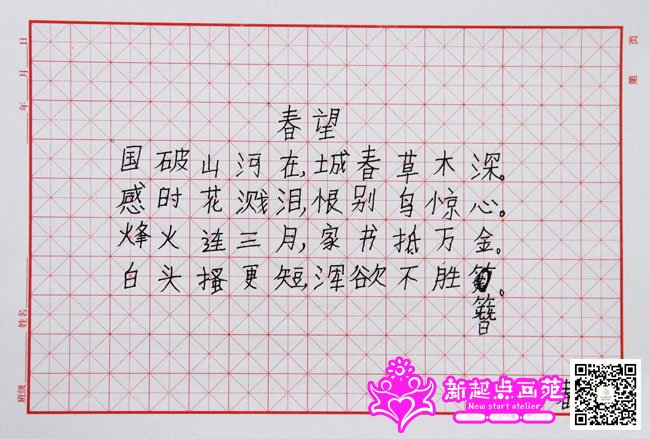 春望
国破山河在,城春草木深。
感时花溅泪,恨别鸟惊心。
烽火连三月,家书抵万金。
白头搔更短,浑欲不胜。
簪
新起点画苑
New start atelier
年 月 日
第 页
班级 姓名